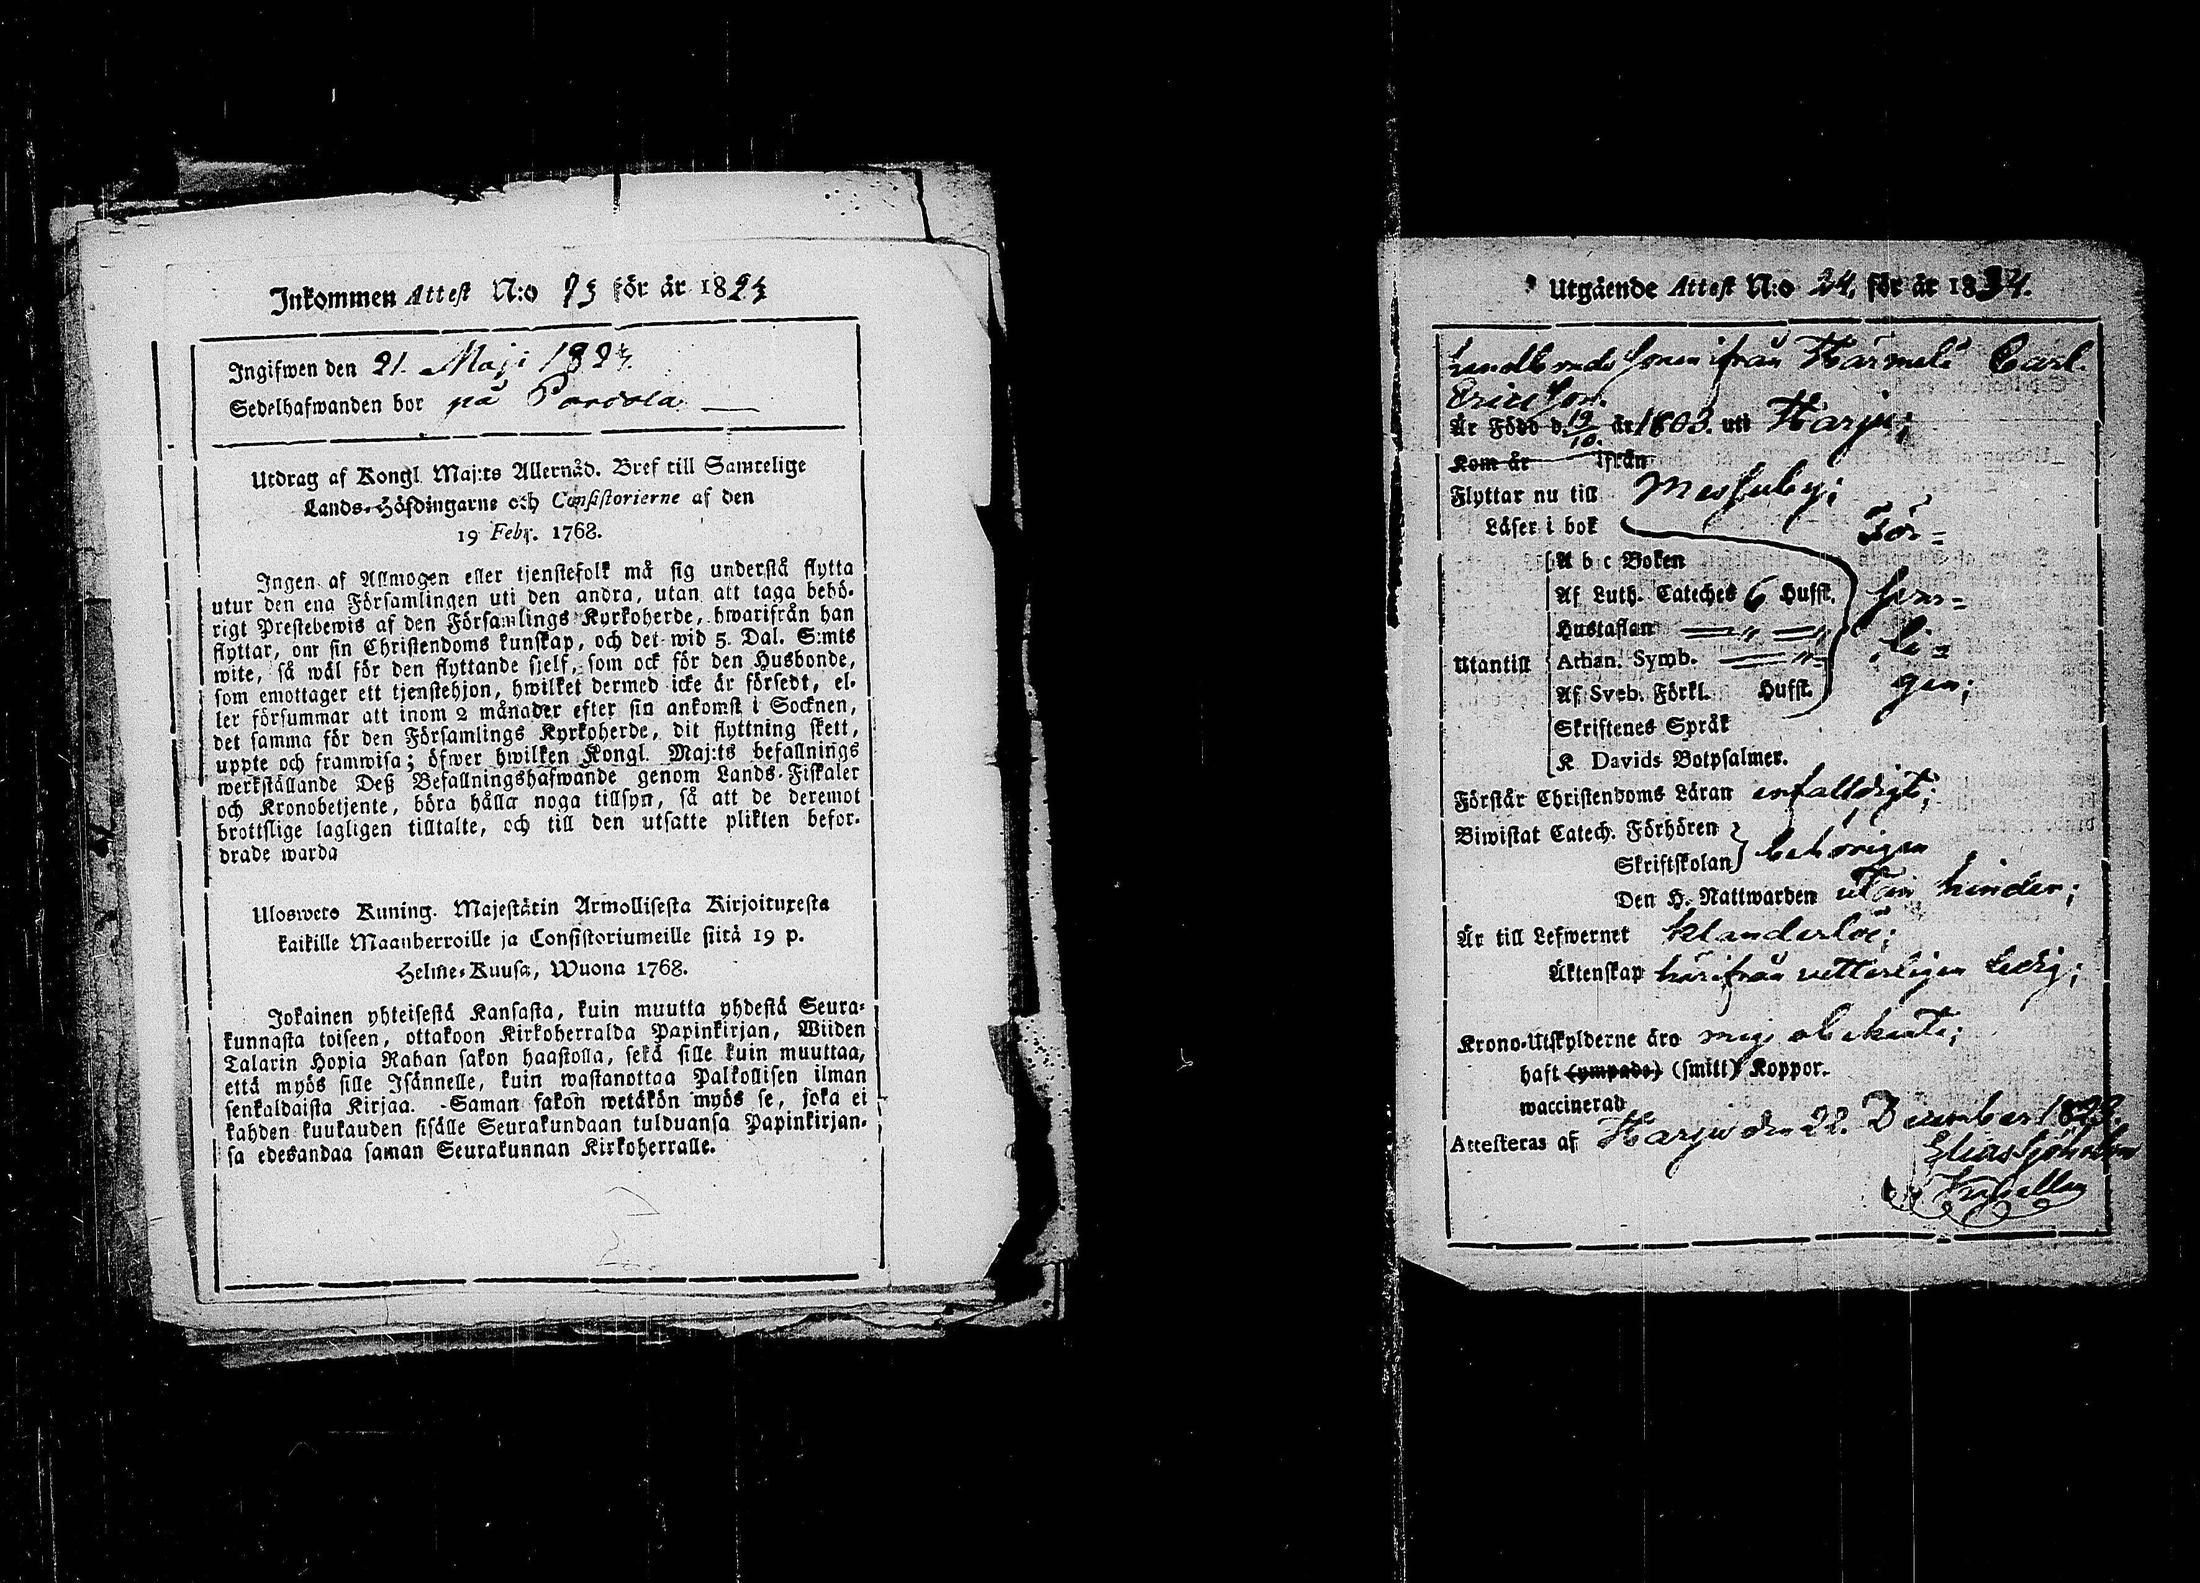 Inkommen Attest N:o 23 för år 1824
Ingifwen den 21. Maji 1824.
Sedelhafwanden bor på
Utdrag af Kongl Maj:ts Allernåd. Bref till Samtelige
Lands-Höfdingarne och Consistorierne af den
19 Febr. 1768.
Ingen af Allmogen eller tjenstefolk må sig understå flytta
utur den ena Församlingen uti den andra, utan att taga behö-
rigt Prestebewis af den Församlings Kyrkoherde, hwarifrån han
flyttar, om sin Christendoms kunskap, och det wid 5. Dal. S:mts
wite, så wäl för den flyttande sielf, som ock för den Husbonde,
som emottager ett tjenstehjon, hwilket dermed icke är försedt, el-
ler försummar att inom 2 månader efter sin ankomst i Socknen,
det samma för den Församlings Kyrkoherde, dit flyttning skett,
uppte och framwisa; öfwer hwilken Kongl. Maj:ts befallnings
werkställande Deß Befallningshafwande genom Lands-Fiskaler
och Kronobetjente, böra hålla noga tillsyn, så att de deremot
brottslige lagligen tilltalte, och till den utsatte plikten befor-
drade warda
Uloswето Kuning. Majestätin Armollisesta Kirjoituxesta
kaikille Maanherroille ja Consistoriumeille siitä 19 p.
Helme-Kuusa, Wuona 1768.
Jokainen yhteisestä Kansasta, kuin muutta yhdestä Seura-
kunnasta toiseen, ottakoon Kirkoherralda Papinkirjan, Wiiden
Talarin Hopia Rahan sakon haastolla, sekä sille kuin muuttaa,
että myös sille Isännelle, kuin wastanottaa Palkollisen ilman
senkaldaista Kirjaa. Saman sakon wetäkön myös se, joka ei
kahden kuukauden sisälle Seurakundaan tulduansa Papinkirjan-
sa edesandaa saman Seurakunnan Kirkoherralle.
Utgående Attest N:o 24. för år 1824.
Landbonds sonen ifrån Härmelä Carl
Ericsson.
Är Född d. 19/10. år 1803. uti Harju;
Kom år ifrån
Flyttar nu till Messuby;
Läser i bok För-
A b c Boken
Af Luth. Cateches 6 Hufst. svar-
Hustaflan
Utantill Athan. Symb. li-
Af Sveb. Förkl. Hufst. gen;
Skriftenes Språk
K Davids Botpsalmer.
Förstår Christendoms Läran enfalldigt;
Biwistat Catech. Förhören
Skriftskolan behörigen
Den H. Nattwarden utan hinder;
Är till Lefwernet klanderlös;
Äktenskap härifrån vetterligen ledig;
Krono-Utskylderne äro mig obekante;
haft (ympade) (smitt) Koppor.
waccinerad
Attesteras af Harju den 22. December 1823.
Elias Sjöholm